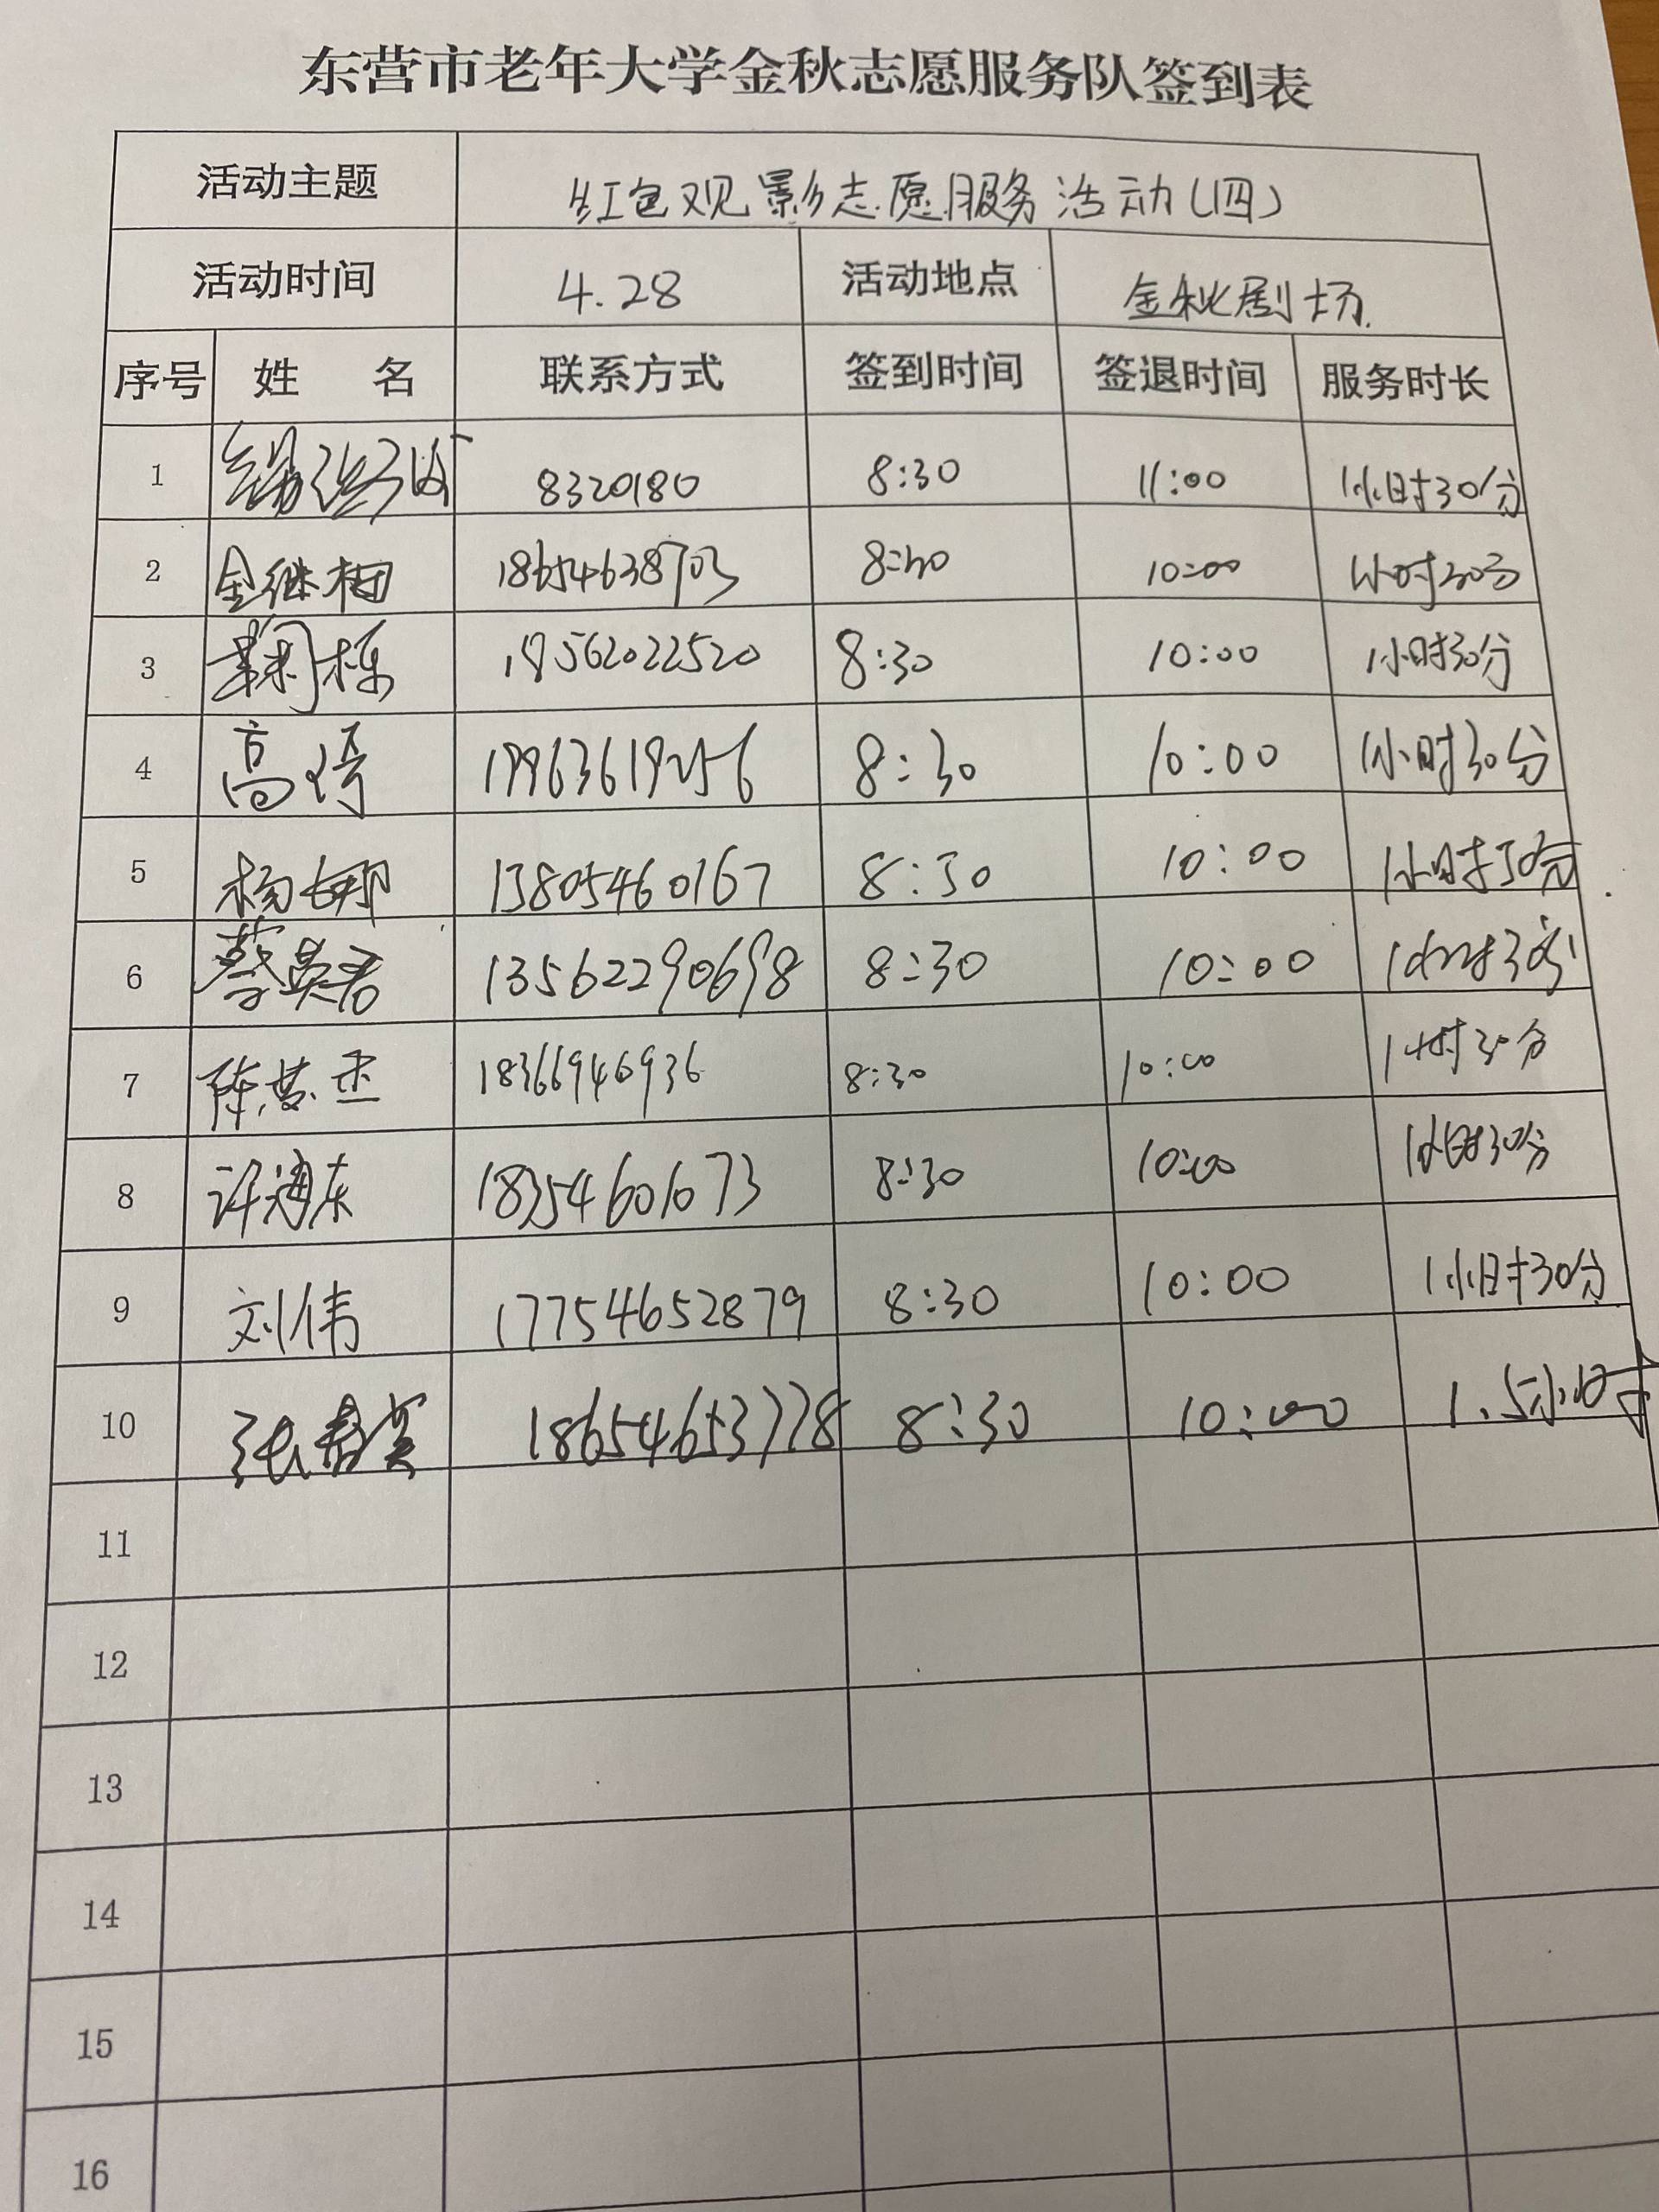 东营市老年大学金秋志愿服务队签到表
活动主题 红色观影志愿服务活动(四)
活动时间 4.28 活动地点 金秋剧场
序号 姓 名 联系方式 签到时间 签退时间 服务时长
1 8320180 8:30 11:00 1小时30分
2 金继相 18654638703 8:30 10:00 1小时30分
3 鞠栋 18562022520 8:30 10:00 1小时30分
4 高倩 19963619256 8:30 10:00 1小时30分
5 杨娜 13805460167 8:30 10:00 1小时30分
6 蔡英君 13562290698 8:30 10:00 1小时30分
7 18366946936 8:30 10:00 1小时30分
8 许海东 18354601673 8:30 10:00 1小时30分
9 刘伟 17754652879 8:30 10:00 1小时30分
10 张春 18654653778 8:30 10:00 1.5小时
11
12
13
14
15
16